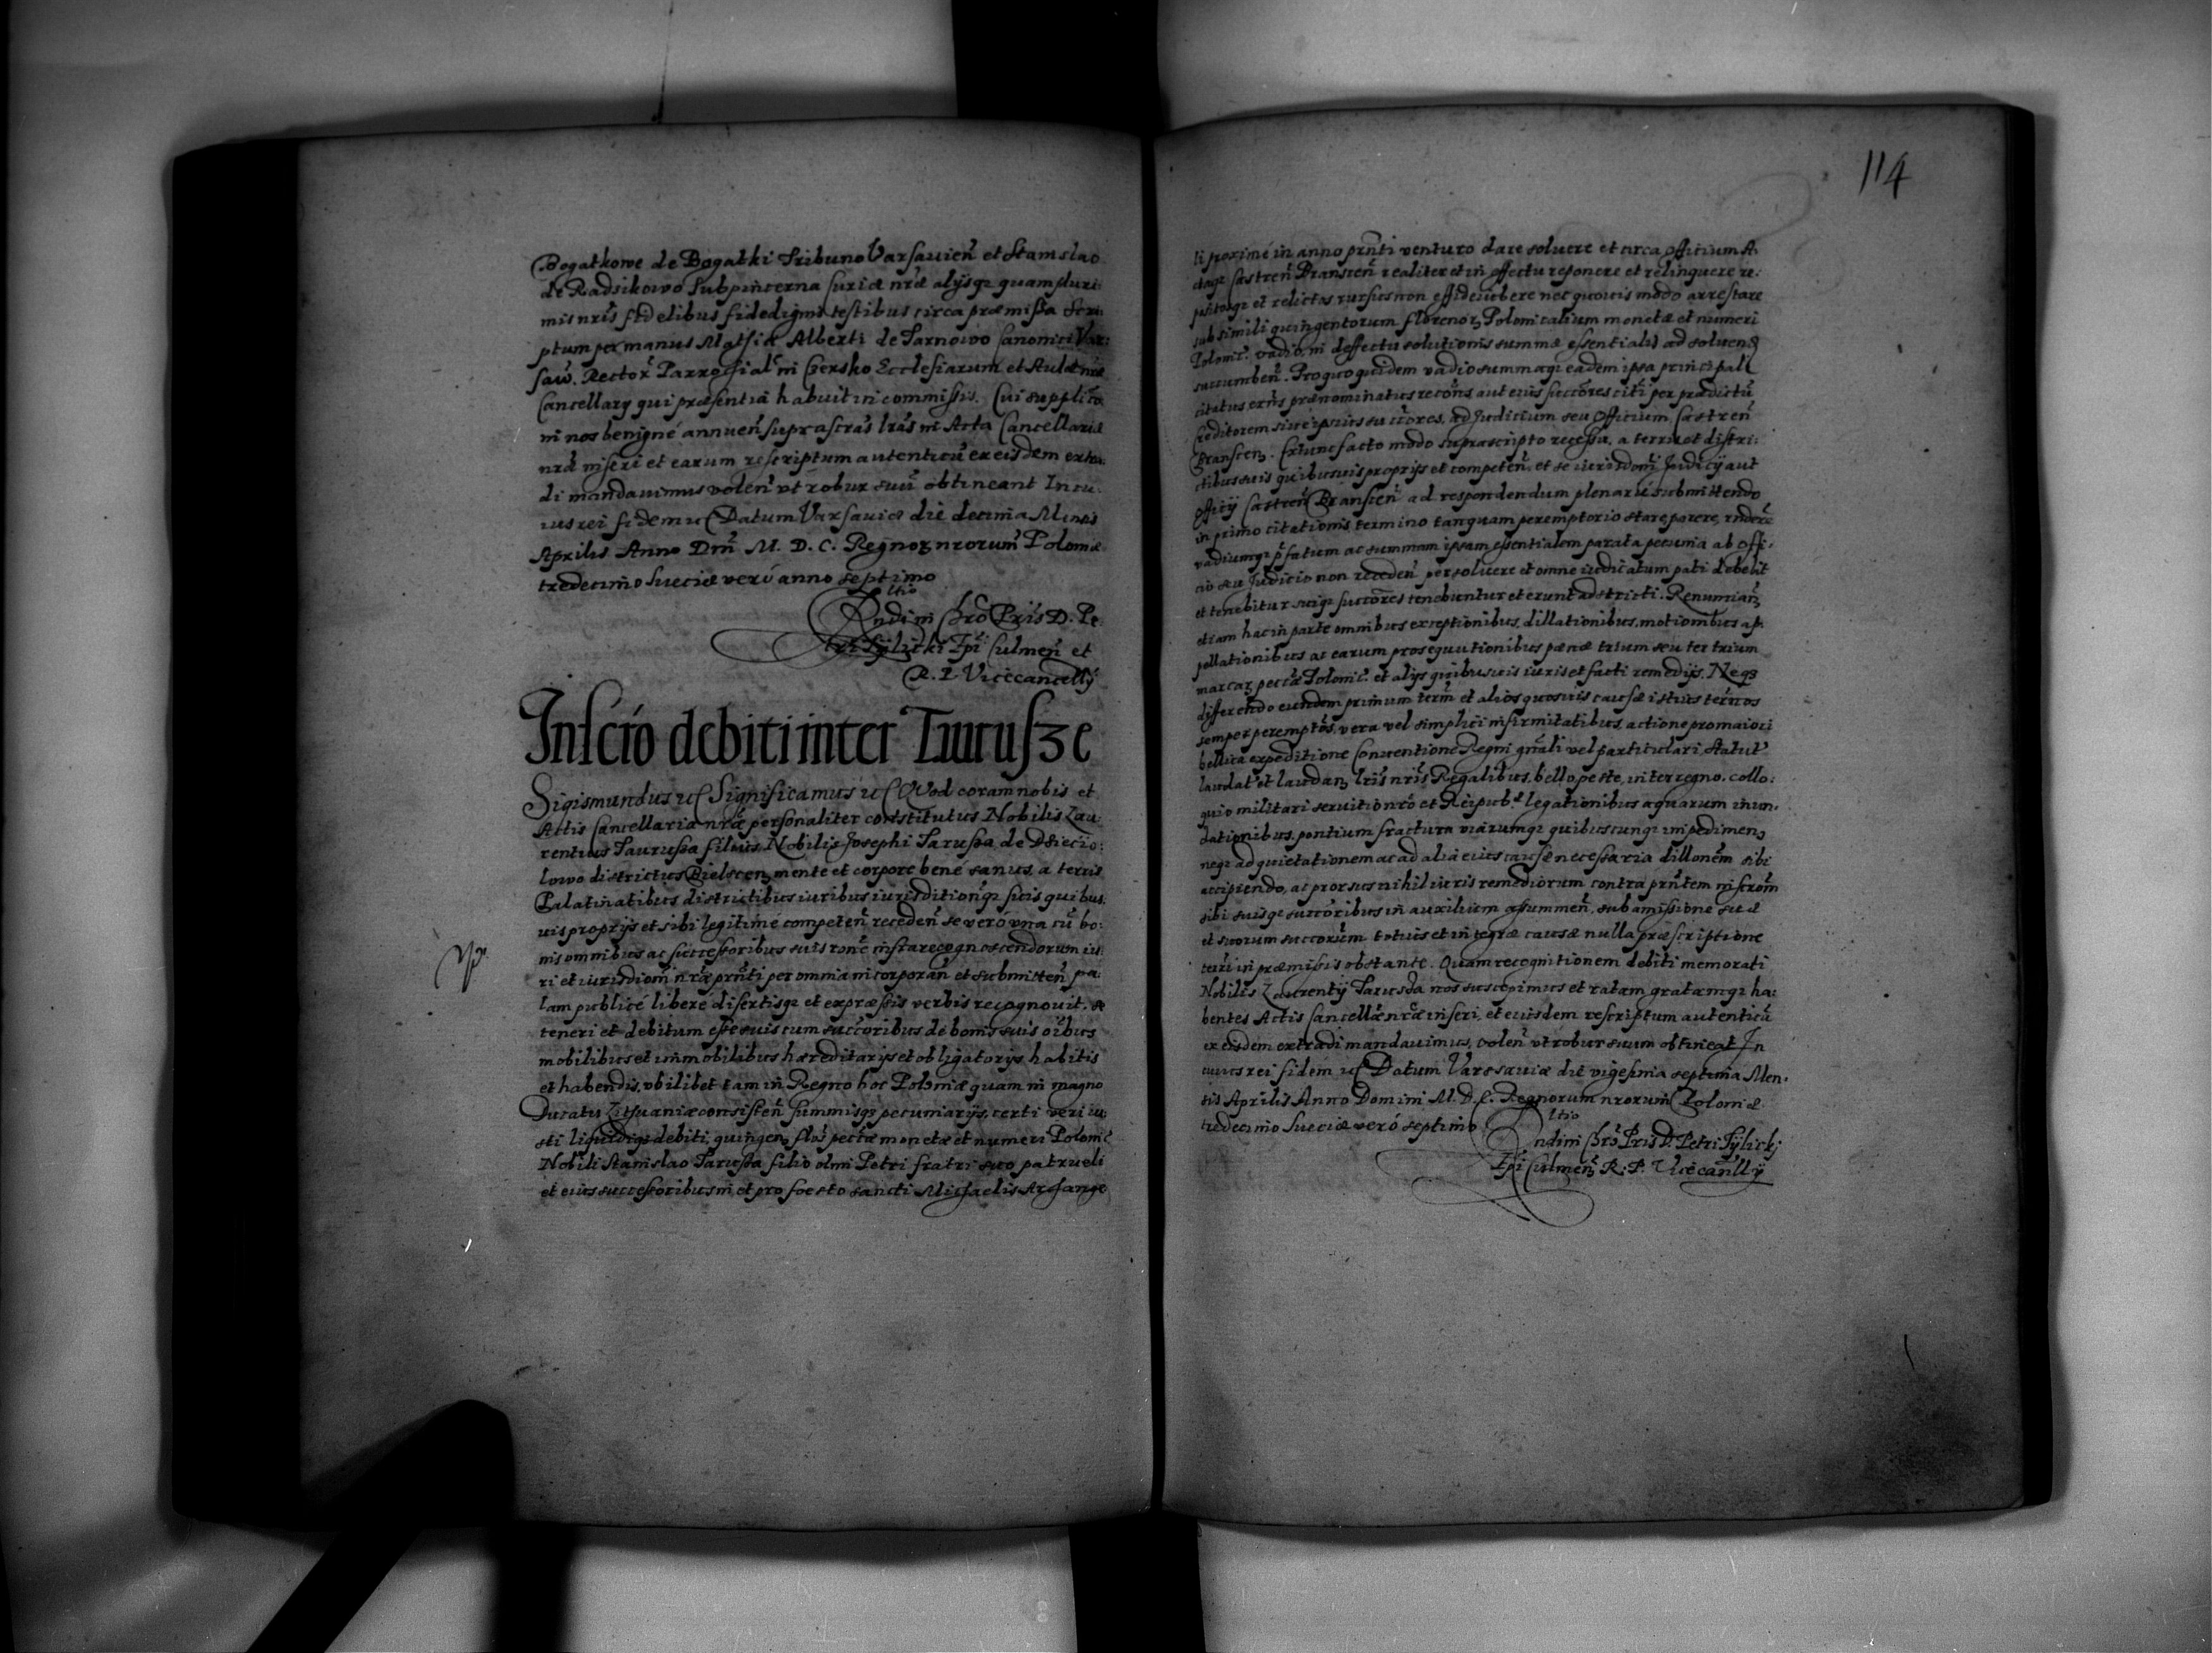 Bogatkowe de Bogatki Tribuno Varsavień et Stanislao
de Radzikowo Subpincerna Curiæ nræ alijsq; quam pluri:
mis nris fidelibus fidedignis testibus circa præmissa Scri:
ptum per manus Mathiæ Alberti de Tarnowo Canonici Var:
saw. Rector Parrochial in Czersko Ecclesiarum et Aulæ nræ
Cancellarij qui præsentia habuit in commissis. Cui supplicõ
ni nos benigné annueñ suprascras lras in Acta Cancellariæ
nræ inseri et earum rescriptum autenticũ ex eisdem extra
di mandauimus voleñ vt robur suũ obtineant In cu:
ius rei fidem etc Datum Varsauiæ die decima Mensis
Aprilis Anno Dni M. D. C. Regnor nrorum Poloniæ
tredecimo Sueciæ veró anno septimo
ltio
Rndi in Chro Pris D. Pe
tri Tÿlicki Epi Culmeñ et
R. P. Vicecancellÿ
Inscrio debiti inter Taurusze
Sigismundus etc Significamus etc Quod coram nobis et
Actis Cancellariæ nræ personaliter constitutus Nobilis Lau:
rentius Taurussa filius Nobilis Josephi Tarussa de Dziecio:
lowo districtus Bielscen mente et corpore bené sanus, a terris
Palatinatibus districtibus iuribus iurisditionq; suis quibus:
uis proprijs et sibi legitimé competeñ recedeñ se veró vna cũ bo:
nis omnibus ac successoribus suis rone infra recognoscendorum iu:
ri et iurisdioni nræ prnti per omnia incorporañ et submitteñ pa:
lam publicé liberé disertisq; et expræssis verbis recognouit. se
teneri et debitum esse suis cum succoribus de bonis suis oibus
mobilibus et immobilibus hæreditarijs et obligatorijs, habitis
et habendis, vbilibet tam in Regno hoc Poloniæ quam in magno
Ducatu Lithuaniæ consisteñ summisq; pecuniarijs, certi veri iu:
sti liquidiq; debiti, quingen flos pectæ monetæ et numeri Polonic
Nobili Stanislao Tarussa filio olim Petri fratri suo patrueli
et eius successoribus in et pro foesto sancti Michaelis Archange
114
li proximé in anno prnti venturo dare soluere et circa officium A:
ctaq; Castreñ Branscen realiter et in effectu reponere et relinquere re:
positosq; et relictos rursus non effideiubere nec quouis modo arrestare
sub simili quingentorum florenor Polonicalium monetæ et numeri
Polonic. vadio, in deffectu solutionis summæ essentialis ad soluen
succumbeñ. Pro quo quidem vadio summaq; eadem ipsa principali
citatus prænominatus recons aut eius succores citi per prædictũ
Creditorem siue ipsius succores, ad Judicium seu Officium Castreñ
Branscen. Extunc facto modo suprascripto recessu, a terris et distri:
ctibus suis quibusuis proprijs et competeñ, et se iurisdoni Judicij aut
Officij Castreñ Branscen ad respondendum plenarié submittendo
in primo citationis termino tanquam peremptorio stare, parere, rndere
vadiumq; pfatum ac summam ipsam essentialem parata pecunia ab offi:
cio seu Judicio non recedeñ persoluere et omne iudicatum pati debebit
et tenebitur suiq; succores tenebuntur et erunt adstricti. Renuncian
etiam hac in parte omnibus exceptionibus, dillationibus, motionibus ap:
pellationibus ac earum prosequutionibus pænæ trium seu ter trium
marcar pectæ Polonic. et alijs quibusuis iuris et facti remedijs. Neq;
differendo eundem primum term et alios quosuis causæ istius ternos
semper peremptos, vera vel simplici infirmitatibus, actione pro maiori
bellica expeditione Conuentione Regni gnali vel particulari, Statut
laudat et laudan, lris nris Regalibus, bello, peste, interregno, collo:
quio militari seruitio nro et Reipub. legationibus aquarum inun:
dationibus, pontium fractura viarumq; quibuscunq; impedimen
neq; ad quietationem ac ad alia eius causæ necessaria dillonem sibi
accipiendo, ac prorsus nihil iuris remediorum contra prntem inscrom
sibi suisq; succoribus in auxilium assummeñ, sub amissione suæ
et suorum succorum totius et integræ causæ nulla præscriptione
terri in præmissis obstante. Quam recognitionem debiti memorati
Nobilis Laurentij Tarussa nos suscepimus et ratam gratamq; ha:
bentes Actis Cancellæ nræ inseri, et eiusdem rescriptum autenticũ
ex eisdem extradi mandauimus, voleñ vt robur suum obtineat In
cuius rei fidem etc Datum Varssauiæ die vigesima septima Men:
sis Aprilis Anno Domini M. D. C. Regnorum nrorum Poloniæ
tredecimo Sueciæ veró septimo
ltio
Rndi in Chro Pris D. Petri Tÿlickj
Epi Culmeñ R. P. Vicecanllÿ